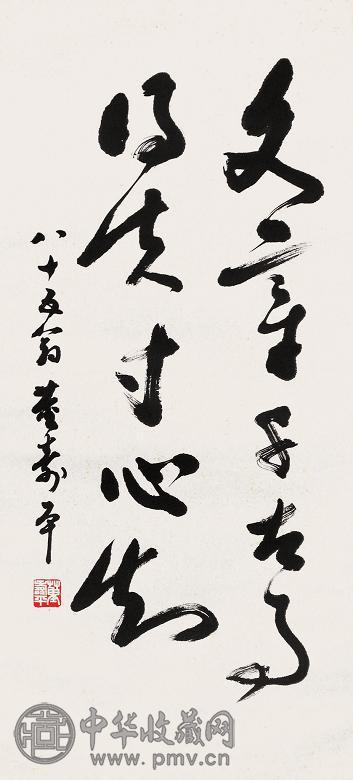 文章千古事
得失寸心知
八十五翁董寿平
中华收藏网
www.pmv.cn